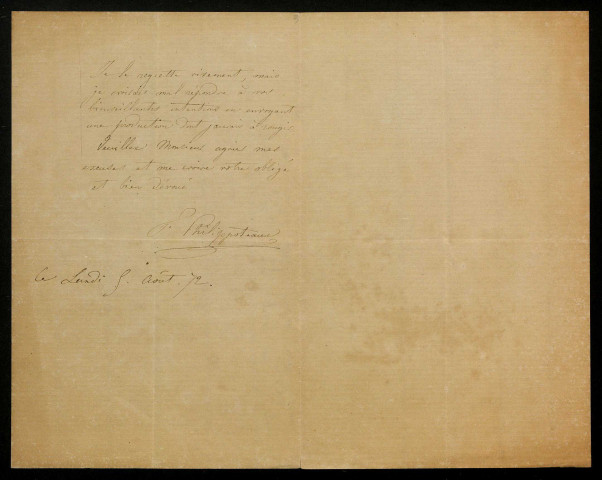 Je le regrette vivement, mais
je croirais mal répondre à vos
bienveillantes intentions en envoyant
une production dont j'aurais à rougir
Veuillez Monsieur agréer mes
excuses et me croire votre obligé
et bien dévoué
F. Philippoteaux
le Lundi 5. Août. 72.